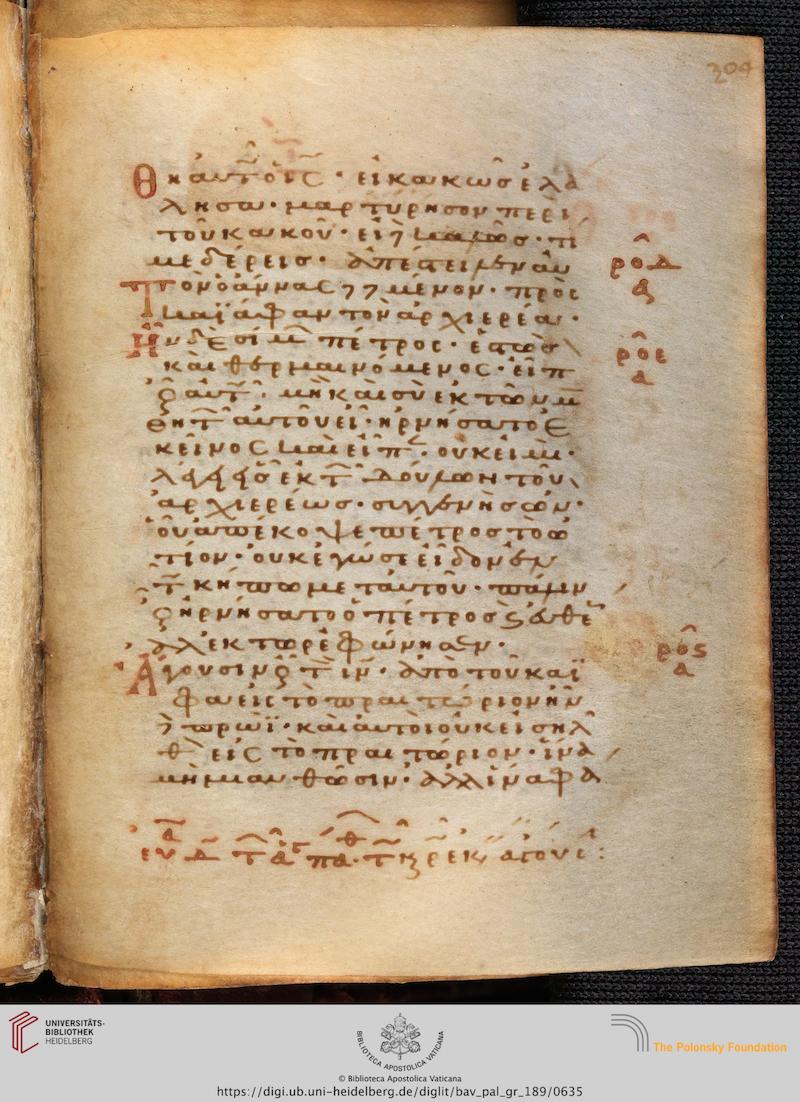 304
Θη αὐτῶ ὁ ις · εἰ κακῶς ἐλά
λησα · μαρτύρησον περὶ
τοῦ κακοῦ · εἰ καλῶς · τί
με δέρεις · ἀπέστειλεν αὐ
Τὸν ὁ ἄννας μένον · πρὸς
καϊάφαν τὸν ἀρχιερέα ·
Ην δὲ σίμ πέτρος · ἑστὼς
καὶ θερμαινόμενος · εἶπ
αὐτ · μὴ καὶ σὺ ἐκ τῶν μ
θητ αὐτοῦ εἶ · ἠρνήσατο ἐ
κεῖνος καὶ εἶπ · οὐκ εἰμι ·
λέγει εἷς ἐκ τ δούλων τοῦ
ἀρχιερέως · συγγενὴς ὢν ·
οὗ ἀπέκοψε πέτρος τὸ ὠ
τίον · οὐκ ἐγώ σε εἶδον ἐν
τ κήπω μετ αὐτοῦ · πάλιν
ἠρνήσατο ὁ πέτρος εὐθέ
ἀλέκτωρ ἐφώνησεν ·
Αγουσιν τ ιν · ἀπὸ τοῦ καϊ
φα εἰς τὸ πραιτώριον ἦν
πρωΐ · καὶ αὐτοὶ οὐκ εἰσῆλ
θ εἰς τὸ πραιτώριον · ἵνα
μὴ μιανθῶσιν · ἀλλ ἵνα φά
ροδ
α
ροε
α
ρος
α
UNIVERSITÄTS-
BIBLIOTHEK
HEIDELBERG
BIBLIOTHECA APOSTOLICA VATICANA
The Polonsky Foundation
© Biblioteca Apostolica Vaticana
https://digi.ub.uni-heidelberg.de/diglit/bav_pal_gr_189/0635